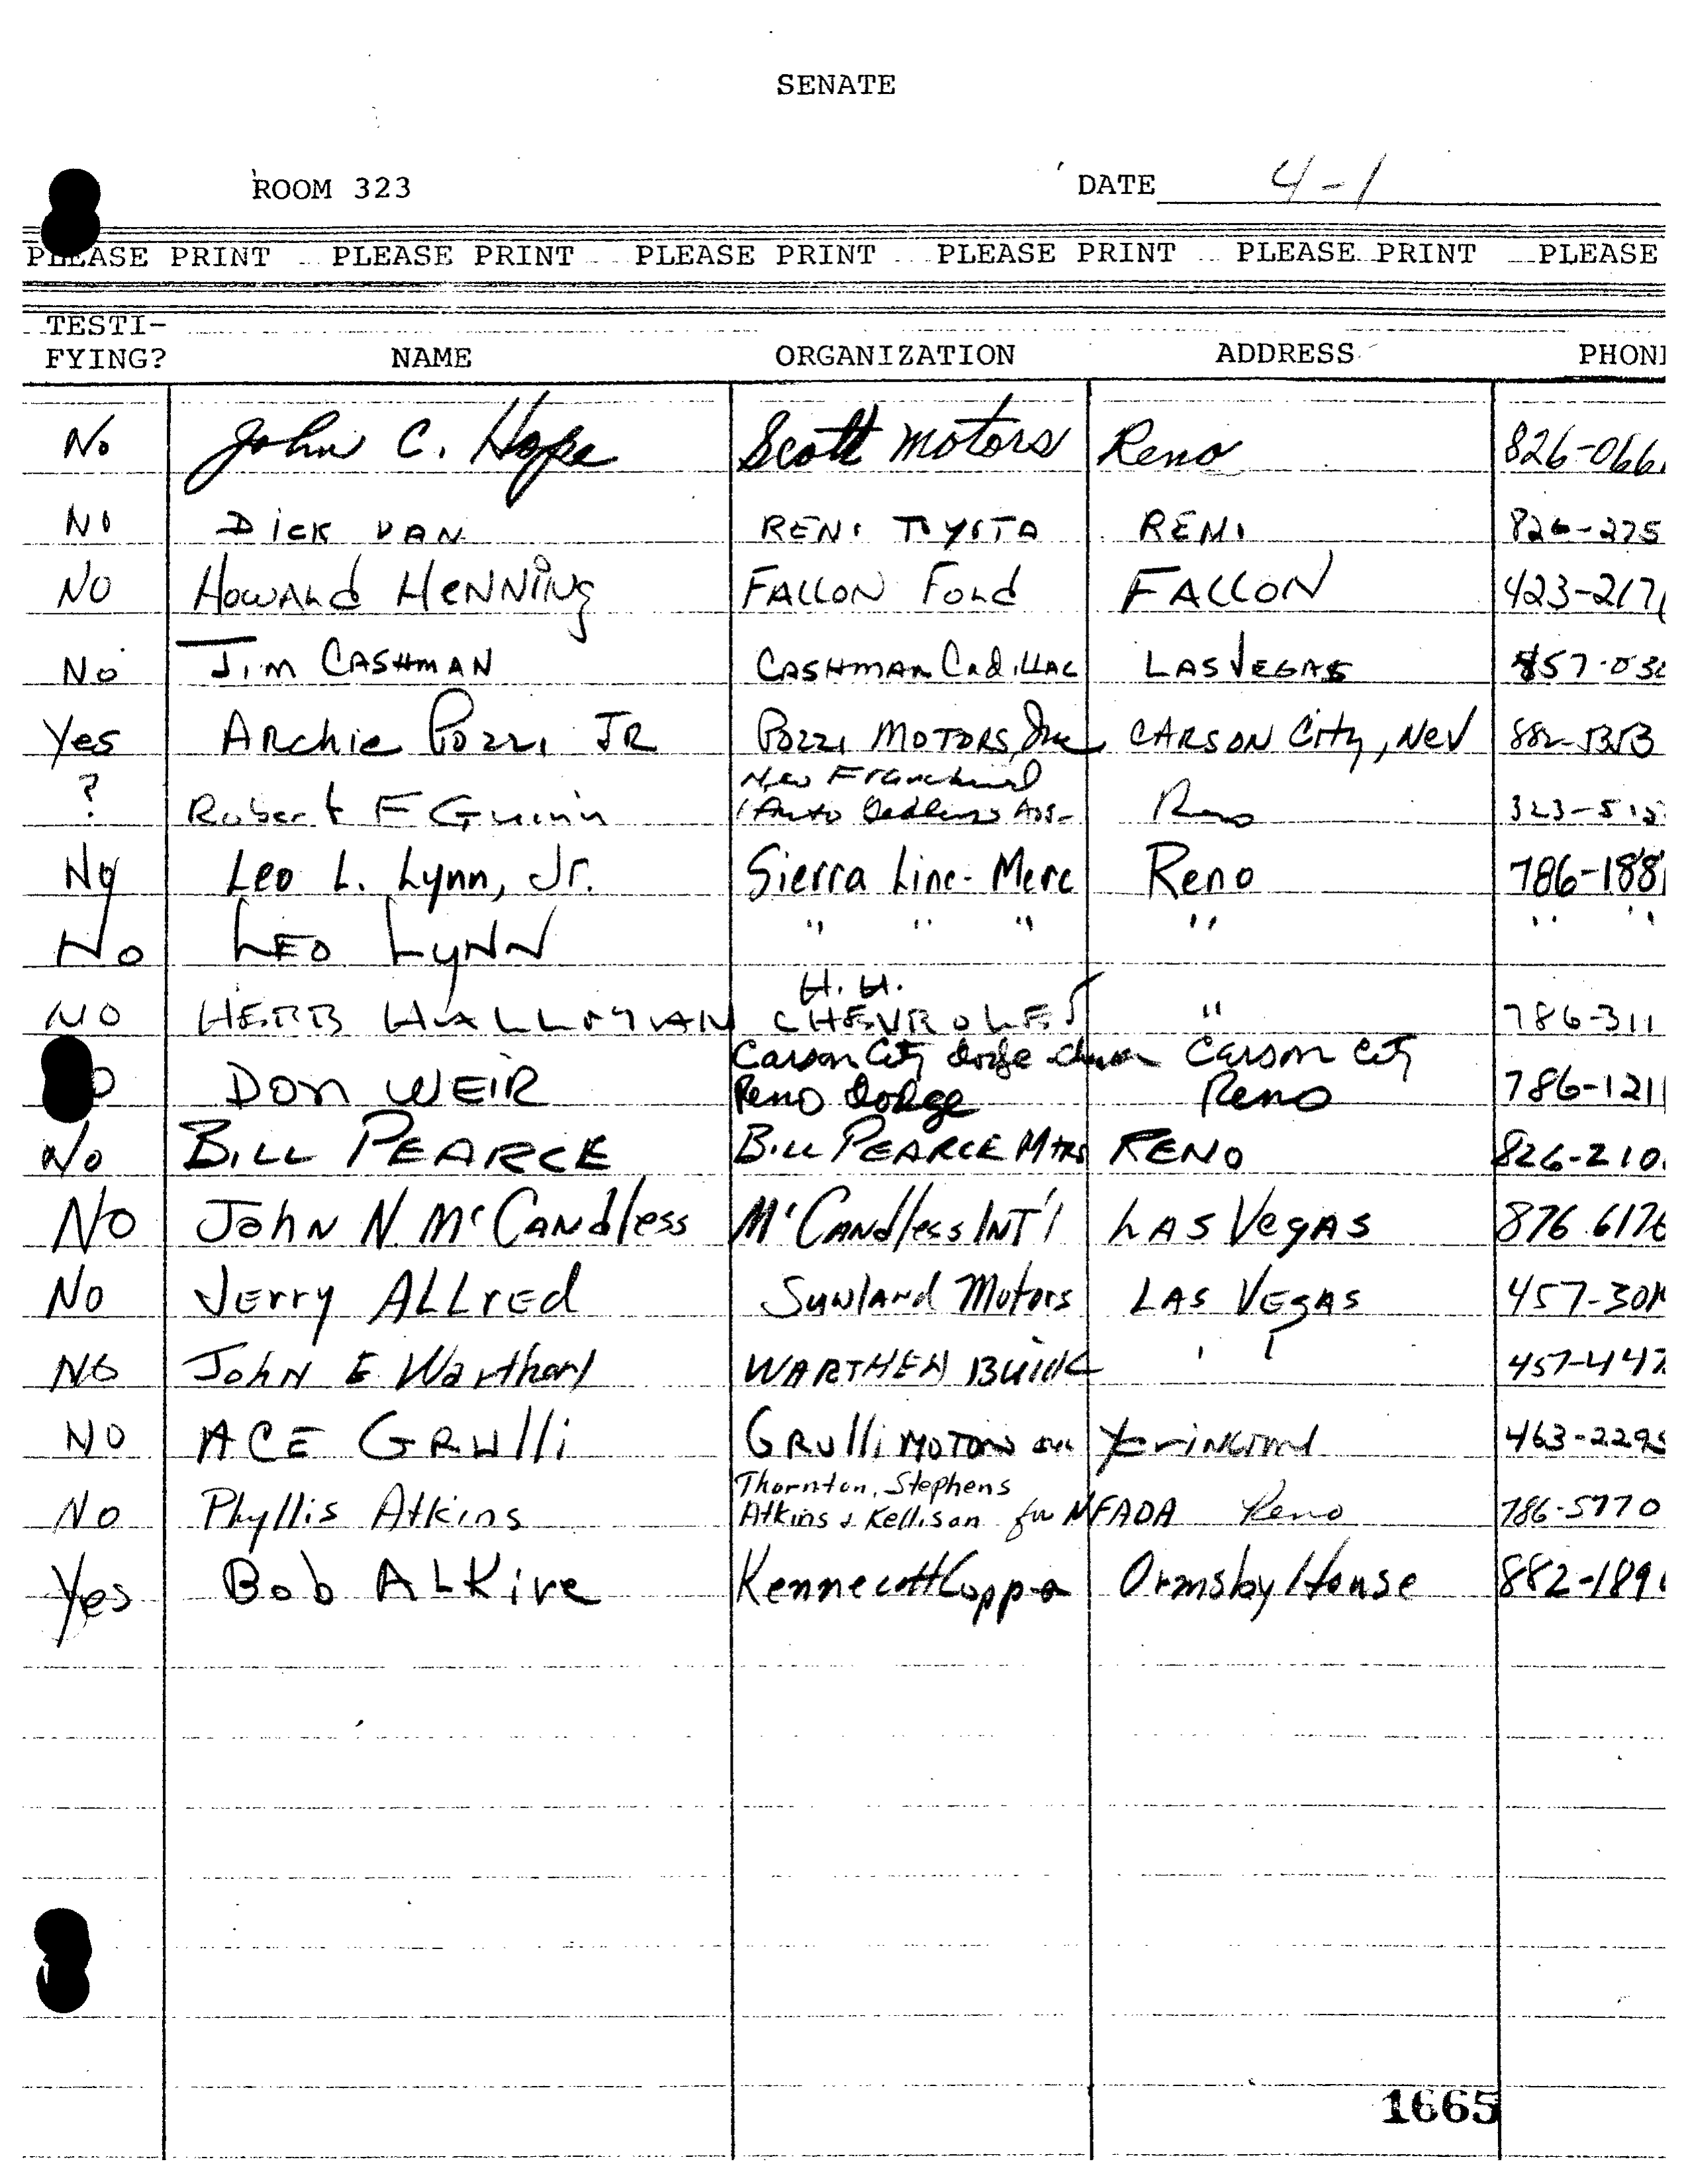 SENATE
ROOM 323 DATE 4-1
PLEASE PRINT PLEASE PRINT PLEASE PRINT PLEASE PRINT PLEASE PRINT PLEASE
TESTI-
FYING? NAME ORGANIZATION ADDRESS PHON
No John C. Hope Scott Motors Reno 826-066
No Dick VAN RENO TOYOTA RENO 826-275
NO Howard Henning FALLON Ford FALLON 423-217
No Jim CASHMAN CASHMAN Cadillac LAS VEGAS 457-03
Yes Archie Pozzi JR Pozzi MOTORS, Inc CARSON City, Nev 882-
New Franchised
? Robert F Guinn Auto Dealers Ass- Reno 323-51
No Leo L. Lynn, Jr. Sierra Linc-Merc Reno 786-188
No LEO LYNN " " " " " "
H. H.
NO HERB HALLMAN CHEVROLET " 786-311
Carson City Dodge Carson City
DON WEIR Reno Dodge Reno 786-121
No BILL PEARCE BILL PEARCE MTRS RENO 826-210
NO John N. McCandless McCandless INT'l LAS VegAS 876 6176
No Jerry ALLred Sunland Motors LAS VEgAS 457-30
NO John E Warthen WARTHEN BUICK " 457-447
NO ACE GRUlli GRUlli MOTORS Yerington 463-2295
Thornton, Stephens
No Phyllis Atkins Atkins & Kellison for NFADA Reno 786-5770
Yes Bob ALKire Kennecott Copper Ormsby House 882-189
1665